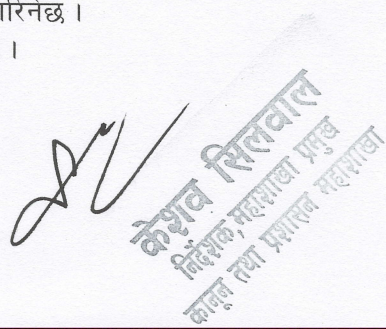 गरिनेछ ।
।
केशव सिलवाल
निर्देशक, महाशाखा प्रमुख
कानून तथा प्रशासन महाशाखा